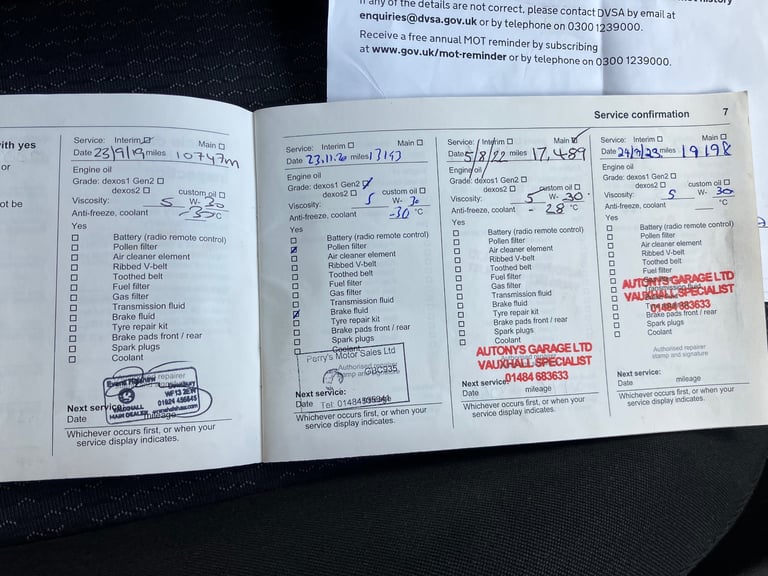 If any of the details are not correct, please contact DVSA by email at
enquiries@dvsa.gov.uk or by telephone on 0300 1239000.
Receive a free annual MOT reminder by subscribing
at www.gov.uk/mot-reminder or by telephone on 0300 1239000.
ith yes
or
ot be
Service confirmation 7
Service: Interim Main
Date 23/9/19 miles 10747m
Engine oil
Grade: dexos1 Gen2
dexos2 custom oil
Viscosity: 5 W- 30
Anti-freeze, coolant -37 °C
Yes
Battery (radio remote control)
Pollen filter
Air cleaner element
Ribbed V-belt
Toothed belt
Fuel filter
Gas filter
Transmission fluid
Brake fluid
Tyre repair kit
Brake pads front / rear
Spark plugs
Coolant
repairer
Evans Halshaw
VAUXHALL
MAIN DEALER
WF13 2ER
Next service:
Date mileage
Whichever occurs first, or when your
service display indicates.
Service: Interim Main
Date 23.11.20 miles 13143
Engine oil
Grade: dexos1 Gen2
dexos2 custom oil
Viscosity: 5 W- 30
Anti-freeze, coolant -30 °C
Yes
Battery (radio remote control)
Pollen filter
Air cleaner element
Ribbed V-belt
Toothed belt
Fuel filter
Gas filter
Transmission fluid
Brake fluid
Tyre repair kit
Brake pads front / rear
Spark plugs
Coolant
Perry's Motor Sales Ltd
Authorised repairer
stamp and signature
Next service:
Date
Whichever occurs first, or when your
service display indicates.
Service: Interim Main
Date 5/8/22 miles 17,489
Engine oil
Grade: dexos1 Gen2
dexos2 custom oil
Viscosity: 5 W- 30
Anti-freeze, coolant - 28 °C
Yes
Battery (radio remote control)
Pollen filter
Air cleaner element
Ribbed V-belt
Toothed belt
Fuel filter
Gas filter
Transmission fluid
Brake fluid
Tyre repair kit
Brake pads front / rear
Spark plugs
Coolant
AUTONYS GARAGE LTD
VAUXHALL SPECIALIST
01484 683633
Next service:
Date mileage
Whichever occurs first, or when your
service display indicates.
Service: Interim Main
Date 24/9/23 miles 19198
Engine oil
Grade: dexos1 Gen2
dexos2 custom oil
Viscosity: 5 W- 30
Anti-freeze, coolant °C
Yes
Battery (radio remote control)
Pollen filter
Air cleaner element
Ribbed V-belt
Toothed belt
Fuel filter
Transmission fluid
AUTONYS GARAGE LTD
VAUXHALL SPECIALIST
01484 683633
Brake pads front / rear
Spark plugs
Coolant
Authorised repairer
stamp and signature
Next service:
Date mileage
Whichever occurs first, or when your
service display indicates.